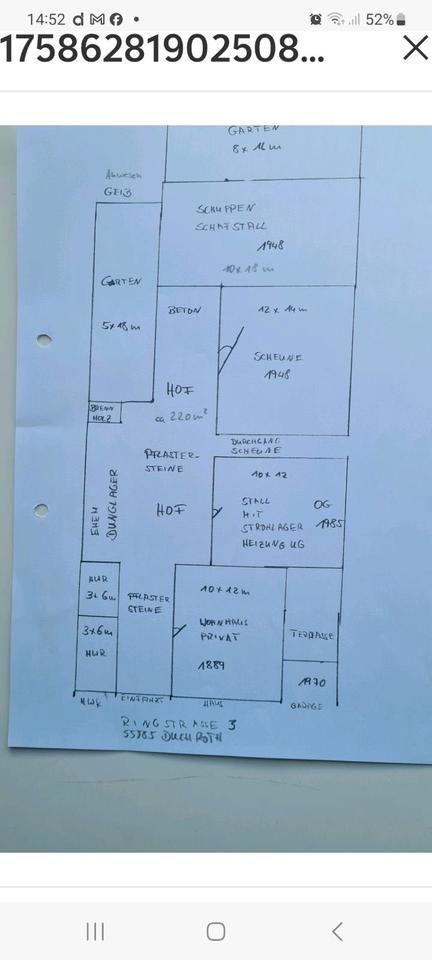 14:52
52%
17586281902508...
GARTEN
8x 16m
Anwesen
GEIB
SCHUPPEN
SCHAFSTALL
1948
10x18 m
GARTEN
5x18m
BETON
12 x 14m
SCHEUNE
1948
HOF
ca 220m²
BRENN
HOLZ
DURCHGANG
SCHEUNE
PFLASTER-
STEINE
10x12
STALL
MIT
STROHLAGER
HEIZUNG UG
OG
1985
HOF
EHEM
DUNGLAGER
HWR
3x6m
PFLASTER
STEINE
10x12m
WOHNHAUS
PRIVAT
1889
3x6m
HWR
TERRASSE
1970
HWR
EINFAHRT
HAUS
GARAGE
RINGSTRASSE 3
55585 DUCHROTH